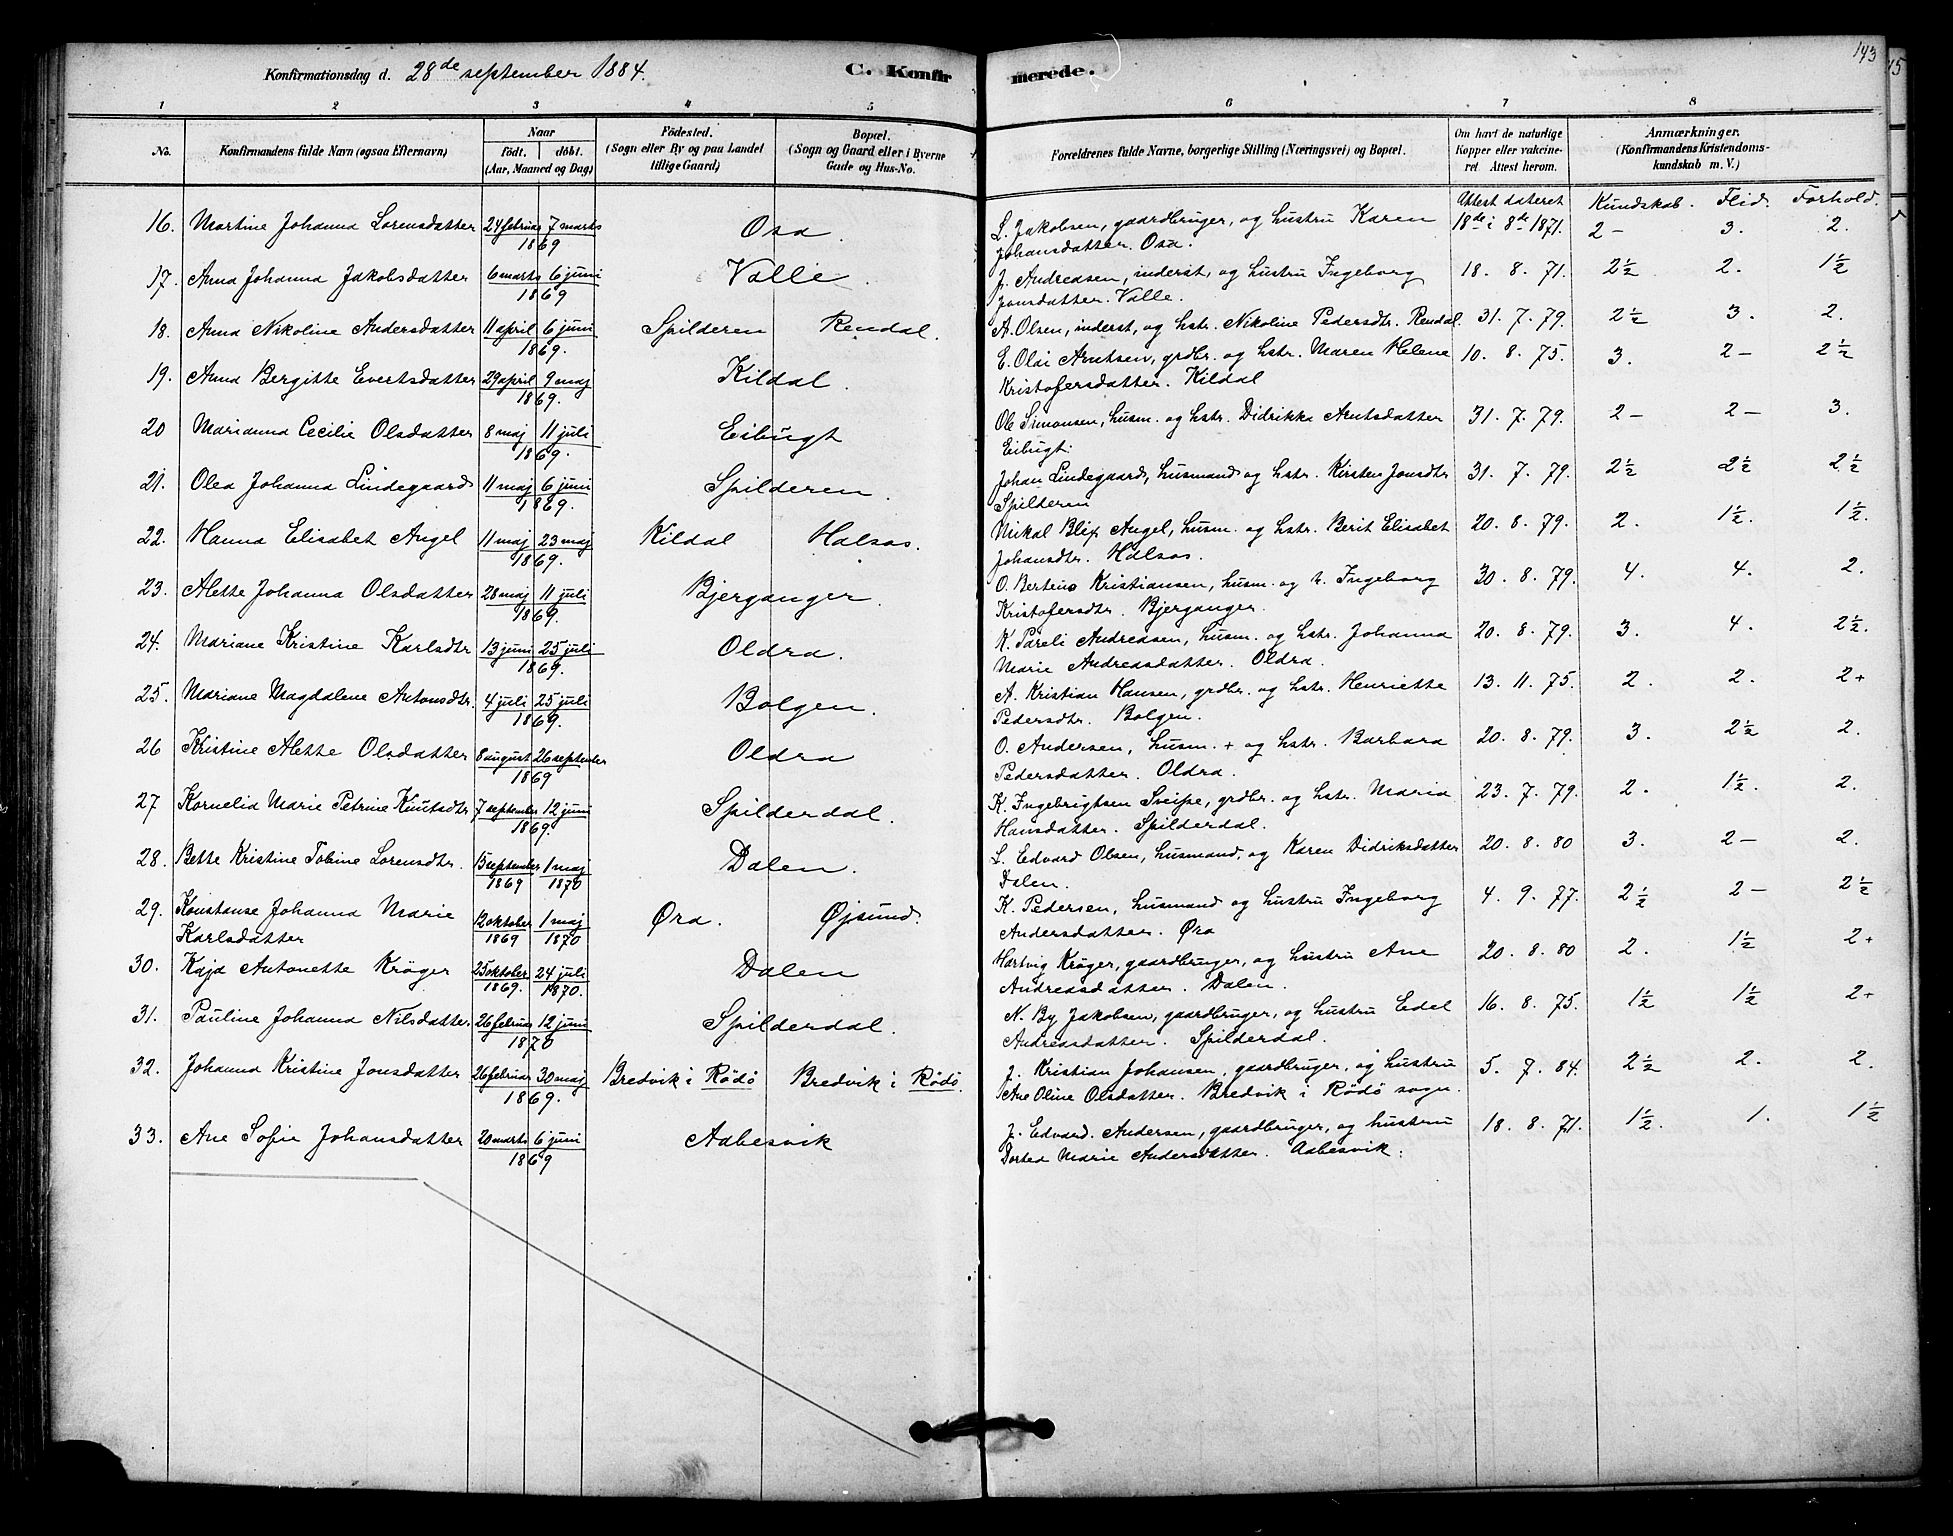 143
15
Konfirmationsdag d. 28de september 1884.
C. Konfirmerede.
1 2 3 4 5 6 7 8
No.
Konfirmandens fulde Navn (ogsaa Efternavn)
Naar
födt. döbt.
(Aar, Maaned og Dag)
Födested.
(Sogn eller By og paa Landet
tillige Gaard)
Bopæl.
(Sogn og Gaard eller i Byerne
Gade og Hus-No.
Forældrenes fulde Navne, borgerlige Stilling (Næringsvei) og Bopæl.
Om havt de naturlige
Kopper eller vakcine-
ret. Attest herom.
Anmærkninger.
(Konfirmandens Kristendoms-
kundskab m. V.)
Attest dateret Kundskab. Flid. Forhold.
16. Martine Johanna Lorensdatter 24 februar 7 marts 1869 Osa. L. Jakobsen, gaardbruger, og hustru Karen 18de i 8de 1871. 2- 3. 2.
Johansdatter. Osa.
17. Anna Johanna Jakobsdatter 6 marts 6 juni 1869 Valle. J. Andreasen, inderst, og hustru Ingeborg 18. 8. 71. 2½ 2. 1½
Jonsdatter. Valle.
18. Anna Nikoline Andersdatter 11 april 6 juni 1869. Spilderen Rendal. A. Olsen, inderst, og hstr. Nikoline Pedersdtr. Rendal. 31. 7. 79. 2½ 3. 2.
19. Anna Bergitte Evertsdatter 29 april 9 maj 1869. Kildal. E. Olai Arntsen, grdbr. og hstr. Maren Helene 10. 8. 75. 3. 2- 2½
Kristofersdatter. Kildal
20 Marianna Cecilie Olsdatter 8 maj 11 juli 1869. Eibugt Ole Simonsen, husm. og hstr. Didrikka Arntsdatter 31. 7. 79. 2- 2- 3.
Eibugt.
21. Olea Johanna Lindegaard 11 maj 6 juni 1869. Spilderen. Johan Lindegaard, husmand og hstr. Kirsten Jonsdtr 31. 7. 79. 2½ 2½ 2½
Spilderen
22. Hanna Elisabet Angel 11 maj 23 maj 1869. Kildal Halsos. Mikal Blix Angel, husm. og hstr. Berit Elisabet 20. 8. 79. 2. 1½. 1½.
Johansdtr. Halsos.
23. Alette Johanna Olsdatter 28 maj 11 juli 1869. Bjerganger. O. Berteus Kristiansen, husm. og h. Ingeborg 30. 8. 79. 4. 4. 2.
Kristofersdtr. Bjerganger.
24. Mariane Kristine Karlsdtr 13 juni 25 juli 1869. Oldra. K. Pareli Andreasen, husm. og hstr. Johanna 20. 8. 79. 3. 4. 2½.
Marie Andreasdatter. Oldra.
25. Mariane Magdalene Antonsdtr. 4 juli 25 juli 1869. Bolgen. A. Kristian Hansen, grdbr. og hstr. Henriette 13. 11. 75. 2. 2. 2+
Pedersdtr. Bolgen.
26 Kristine Alette Olsdatter 8 august 26 september 1869 Oldra O. Andersen, husm. + og hstr. Barbara 20. 8. 79. 3. 2½ 2.
Pedersdatter. Oldra.
27 Kornelia Marie Petrine Knutsdtr. 7 september 12 juni 1869. Spilderdal. K. Ingebrigtsen Sveipe, grdbr. og hstr. Maria 23. 7. 79. 2. 1½. 2.
Hansdatter. Spilderdal.
28. Bette Kristine Tobine Lorensdtr. 15 september 1869 1 maj 1870 Dalen. L. Edvard Olsen, husmand, og Karen Didriksdatter 20. 8. 80 3. 2- 2.
Dalen.
29. Konstanse Johanna Marie 12 oktober 1869 1 maj 1870 Øra. Øjsund. K. Pedersen, husmand og hustru Ingeborg 4. 9. 77. 2½ 2- 2½
Karlsdatter Andersdatter. Øra
30. Kaja Antonette Krøger 25 oktober 1869. 24 juli 1870. Dalen Hartvig Krøger, gaardbruger, og hustru Ane 20. 8. 80 2. 1½ 2+
Andreasdatter. Dalen.
31. Pauline Johanna Nilsdatter. 26 februar 12 juni 1870 Spilderdal. N. By Jakobsen, gaardbruger, og hustru Edel 16. 8. 75. 1½ 1½ 2+
Andreasdatter. Spilderdal.
32. Johanna Kristine Jonsdatter 26 februar 30 maj 1869. Bredvik i Rødø Bredvik i Rødø. J. Kristian Johansen, gaardbruger, og hustru 5. 7. 84. 2½ 2. 2.
Ane Oline Olsdatter. Bredvik i Rødø sogn.
33. Ane Sofie Johansdatter 20 marts 6 juni 1869 Aabesvik J. Edvard. Andersen, gaardbruger, og hustru 18. 8. 71. 1½. 1. 1½
Dortea Marie Andersdatter. Aabesvik.